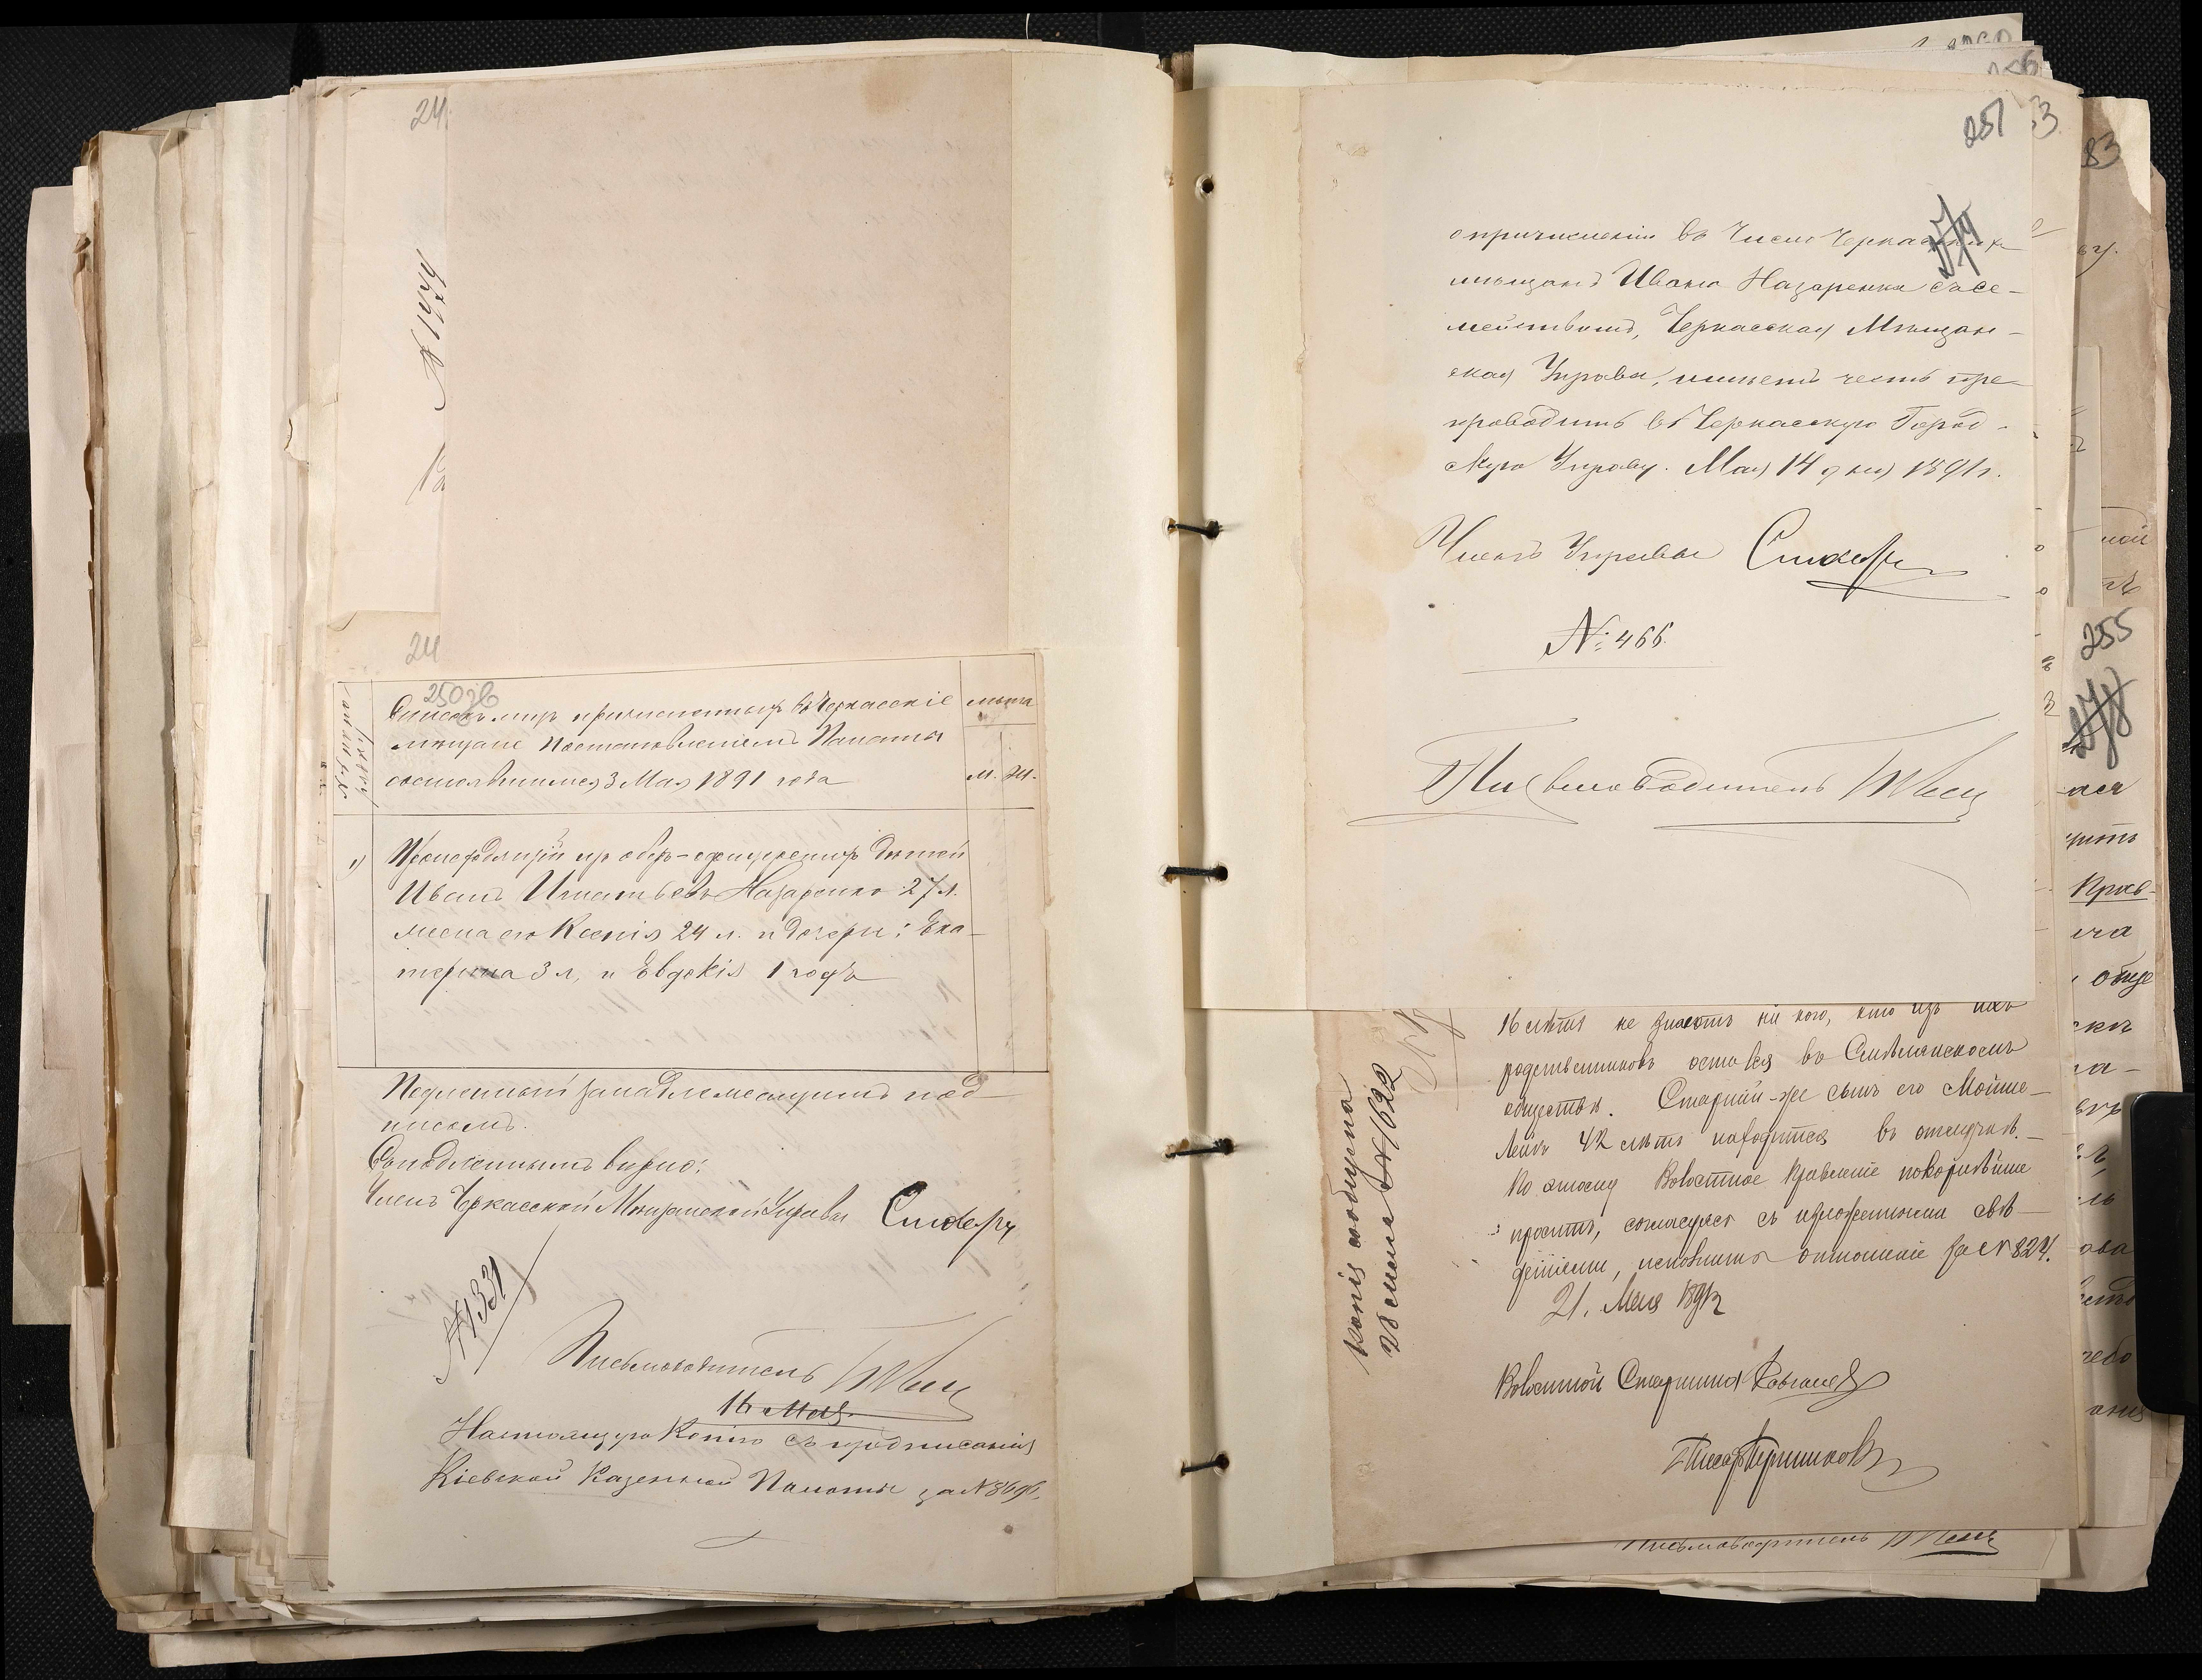 24
№ 1474
24
250 об
Списокъ лицъ причисленныхъ въ Черкасскіе
мѣщане постановленіемъ Палаты
состоявшимся 3 Мая 1891 года
лѣта
м. ж.
1) Происходящій изъ оберъ-офицерскихъ дѣтей
Иванъ Игнатьевъ Назаренко 27 л.
жена его Ксенія 24 л. и дочери: Ека-
терина 3 л. и Евдокія 1 годъ
Подлинный за надлежащимъ под-
писомъ.
Съ подлиннымъ вѣрно:
Членъ Черкасской Мѣщанской Управы
№ 1331
Письмоводитель
16 Мая
Настоящую Копію съ предписанія
Кіевской Казенной Палаты за №
251
3
83
274
о причисленіи въ число Черкасскихъ
мѣщанъ Ивана Назаренка съ се-
мействомъ, Черкасская Мѣщан-
ская Управа, имѣетъ честь пре-
проводить въ Черкасскую Город-
скую Управу. Мая 14 дня 1891 г.
Членъ Управы
№ 466.
Письмоводитель
255
278
16 лѣтъ не знаетъ ни кого, кто изъ ихъ
родственниковъ остался въ Смѣлянскомъ
обществѣ. Старшій-же сынъ его Мойше-
Лейбъ 42 лѣтъ находится въ отлучкѣ.
По этому Волостное Правленіе покорнѣйше
проситъ, согласуясь съ изложенными свѣ-
деніями, исполнить отношеніе за № 824.
21. Мая 1891 г
Волостной Старшина
Писарь
копія сообщена
28 № 1622
Письмоводитель